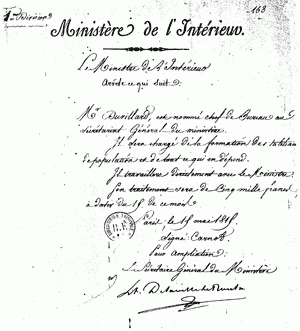 1ère Division
168
Ministère de l'Intérieur.
Le Ministre de l'Intérieur
Arrête ce qui suit.
Mr Duvillard, est nommé chef de Bureau au
Secrétariat Général du ministère.
Il sera chargé de la formation des tables
de population et de tout ce qui en dépend.
Il travaillera directement avec le Ministre.
Son traitement sera de Cinq mille francs
à dater du 15 de ce mois.
Paris, le 15 mai 1815,
Signé: Carnot.
Pour ampliation:
Le Secrétaire Général du Ministère